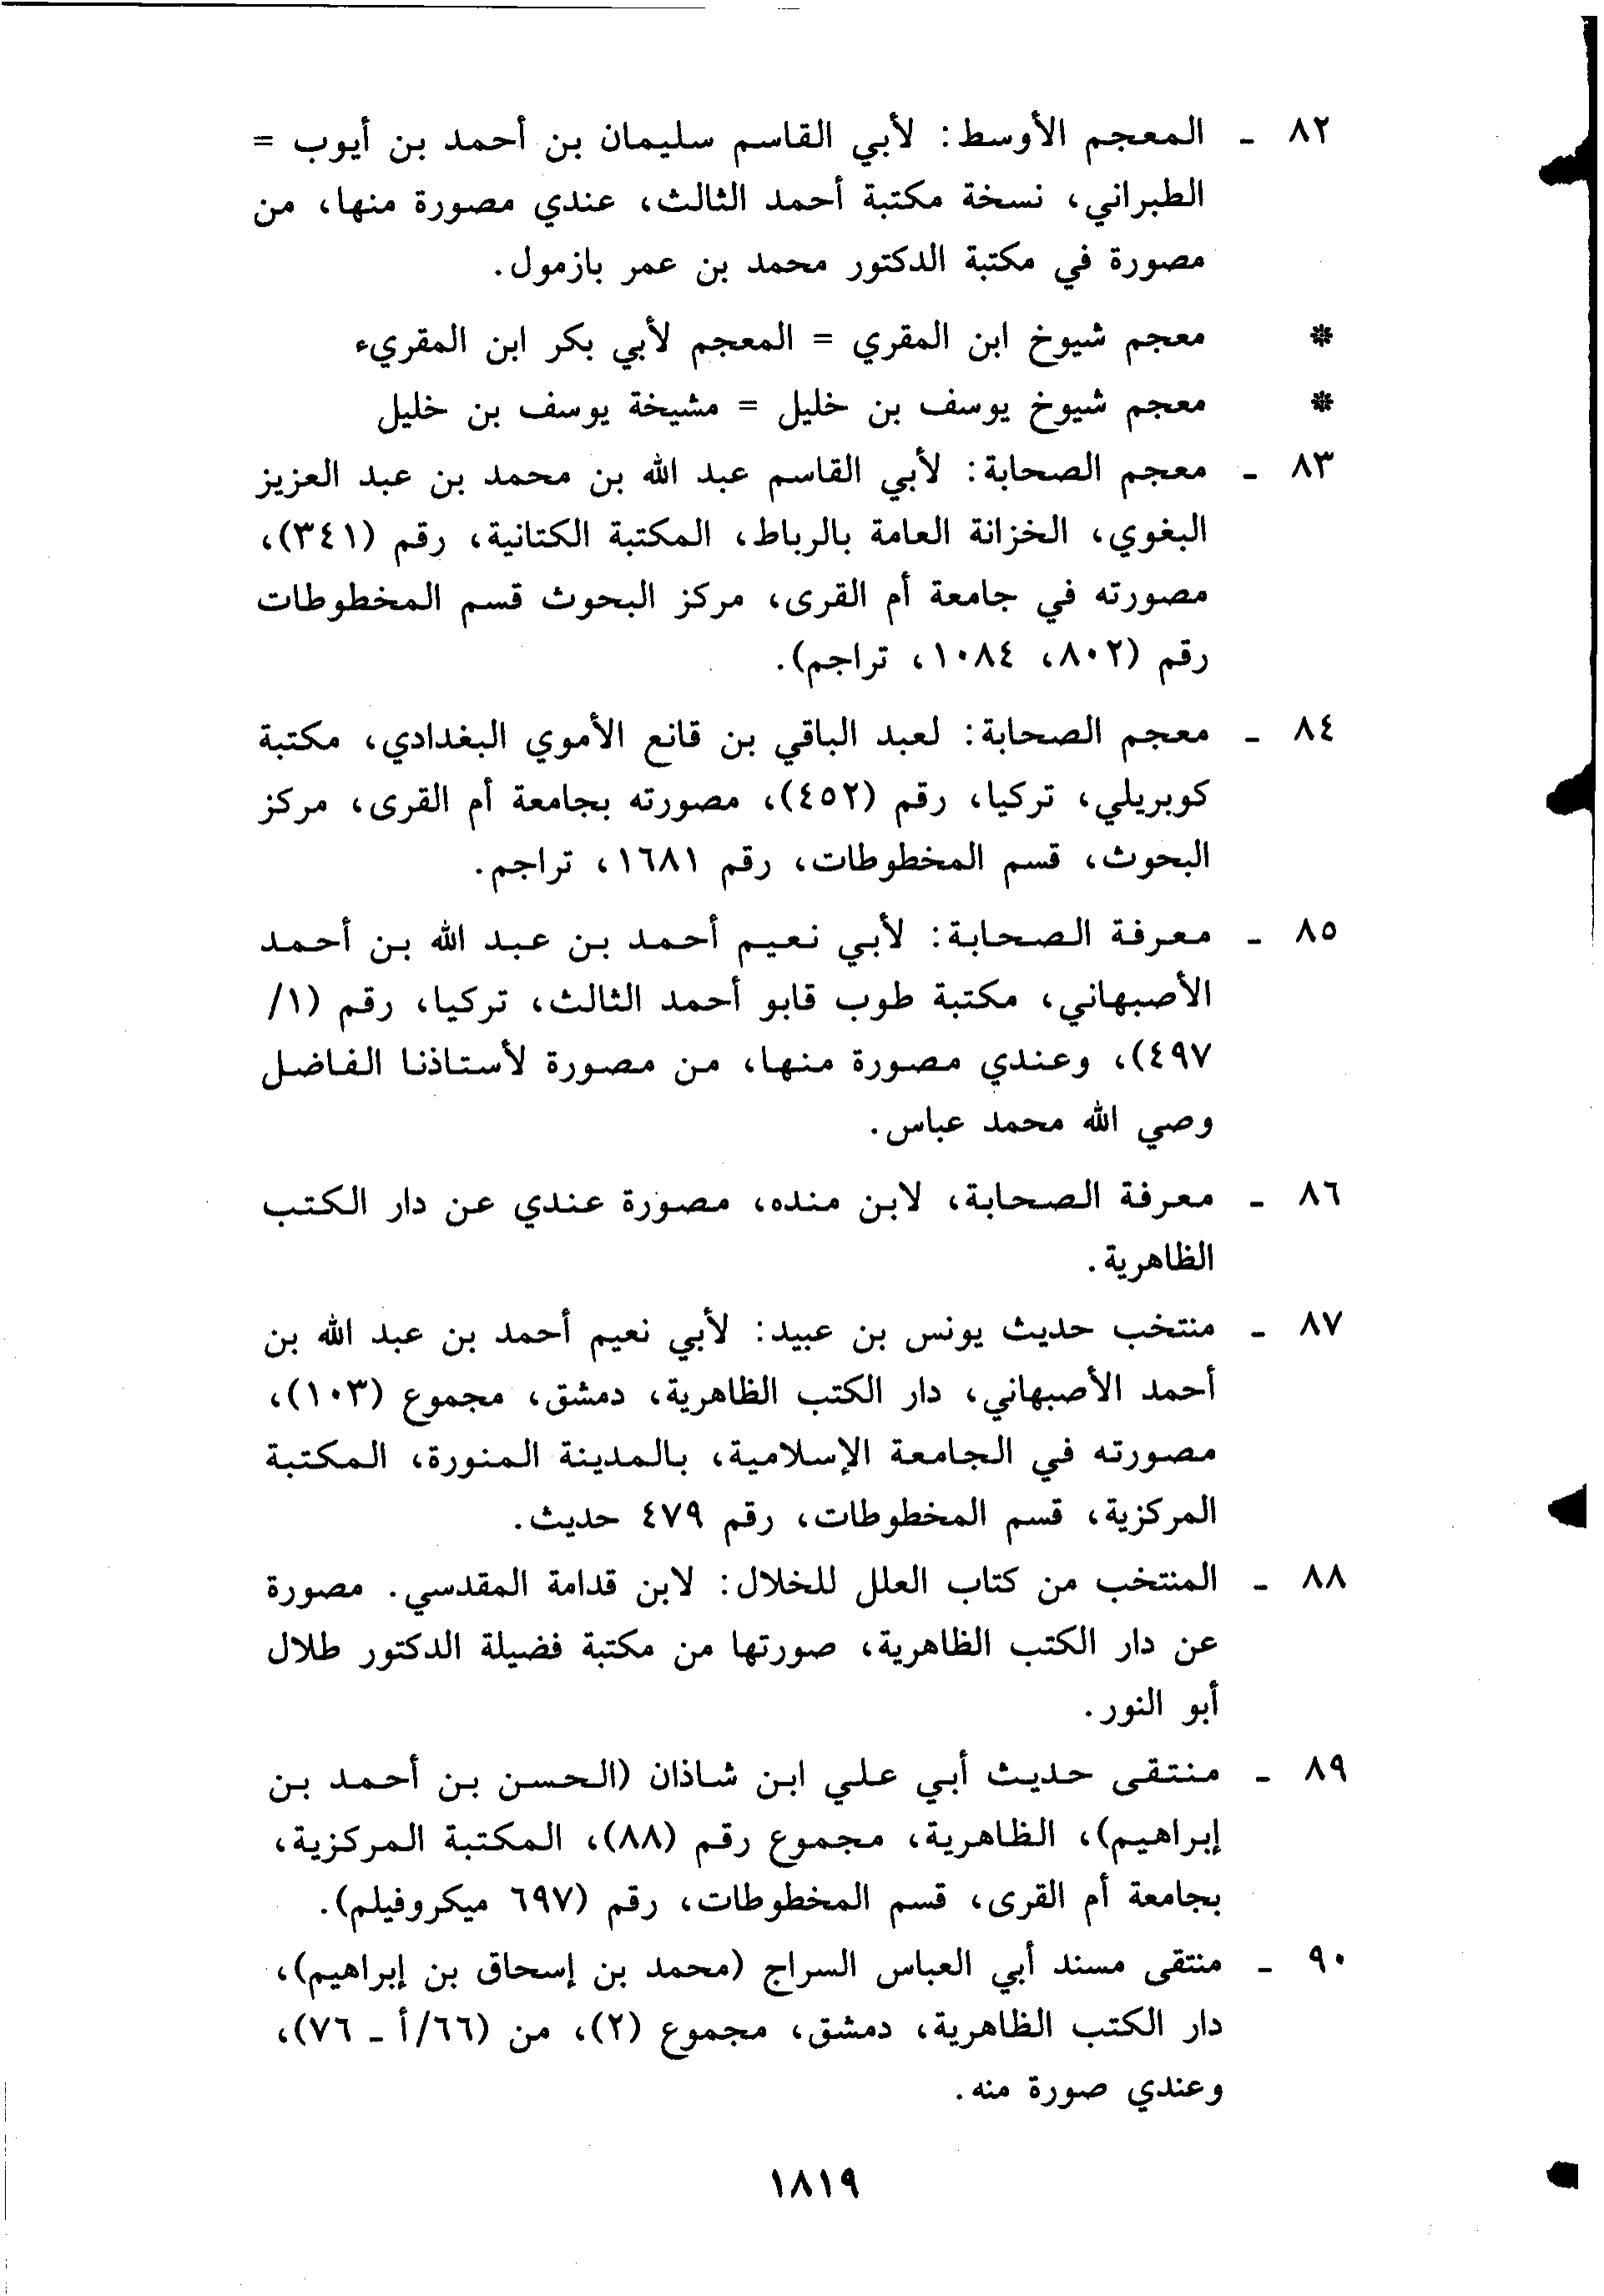 ٨٢ ـ المعجم الأوسط: لأبي القاسم سليمان بن أحمد بن أيوب =
الطبراني، نسخة مكتبة أحمد الثالث، عندي مصورة منها، من
مصورة في مكتبة الدكتور محمد بن عمر بازمول.
* معجم شيوخ ابن المقري = المعجم لأبي بكر ابن المقريء
* معجم شيوخ يوسف بن خليل = مشيخة يوسف بن خليل
٨٣ ـ معجم الصحابة: لأبي القاسم عبد الله بن محمد بن عبد العزيز
البغوي، الخزانة العامة بالرباط، المكتبة الكتانية، رقم (٣٤١)،
مصورته في جامعة أم القرى، مركز البحوث قسم المخطوطات
رقم (٨٠٢، ١٠٨٤، تراجم).
٨٤ ـ معجم الصحابة: لعبد الباقي بن قانع الأموي البغدادي، مكتبة
كوبريلي، تركيا، رقم (٤٥٢)، مصورته بجامعة أم القرى، مركز
البحوث، قسم المخطوطات، رقم ١٦٨١، تراجم.
٨٥ ـ معرفة الصحابة: لأبي نعيم أحمد بن عبد الله بن أحمد
الأصبهاني، مكتبة طوب قابو أحمد الثالث، تركيا، رقم (١/
٤٩٧)، وعندي مصورة منها، من مصورة لأستاذنا الفاضل
وصي الله محمد عباس.
٨٦ ـ معرفة الصحابة، لابن منده، مصورة عندي عن دار الكتب
الظاهرية.
٨٧ ـ منتخب حديث يونس بن عبيد: لأبي نعيم أحمد بن عبد الله بن
أحمد الأصبهاني، دار الكتب الظاهرية، دمشق، مجموع (١٠٣)،
مصورته في الجامعة الإسلامية، بالمدينة المنورة، المكتبة
المركزية، قسم المخطوطات، رقم ٤٧٩ حديث.
٨٨ ـ المنتخب من كتاب العلل للخلال: لابن قدامة المقدسي. مصورة
عن دار الكتب الظاهرية، صورتها من مكتبة فضيلة الدكتور طلال
أبو النور.
٨٩ ـ منتقى حديث أبي علي ابن شاذان (الحسن بن أحمد بن
إبراهيم)، الظاهرية، مجموع رقم (٨٨)، المكتبة المركزية،
بجامعة أم القرى، قسم المخطوطات، رقم (٦٩٧ ميكروفيلم).
٩٠ ـ منتقى مسند أبي العباس السراج (محمد بن إسحاق بن إبراهيم)،
دار الكتب الظاهرية، دمشق، مجموع (٢)، من (٦٦/أ ـ ٧٦)،
وعندي صورة منه.
١٨١٩